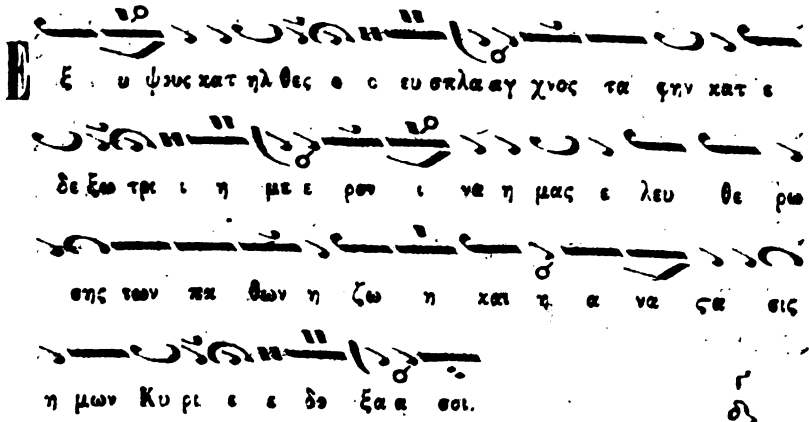 Ε ξ υ ψους κατ ηλ θες ο ο ευ σπλα αγ χνος τα φην κατ ε
δε ξω τρι ι η με ε ρον ι να η μας ε λευ θε ρω
σης των πα θων η ζω η και η α να ϛα σις
η μων Κυ ρι ε ε δο ξα α σοι.